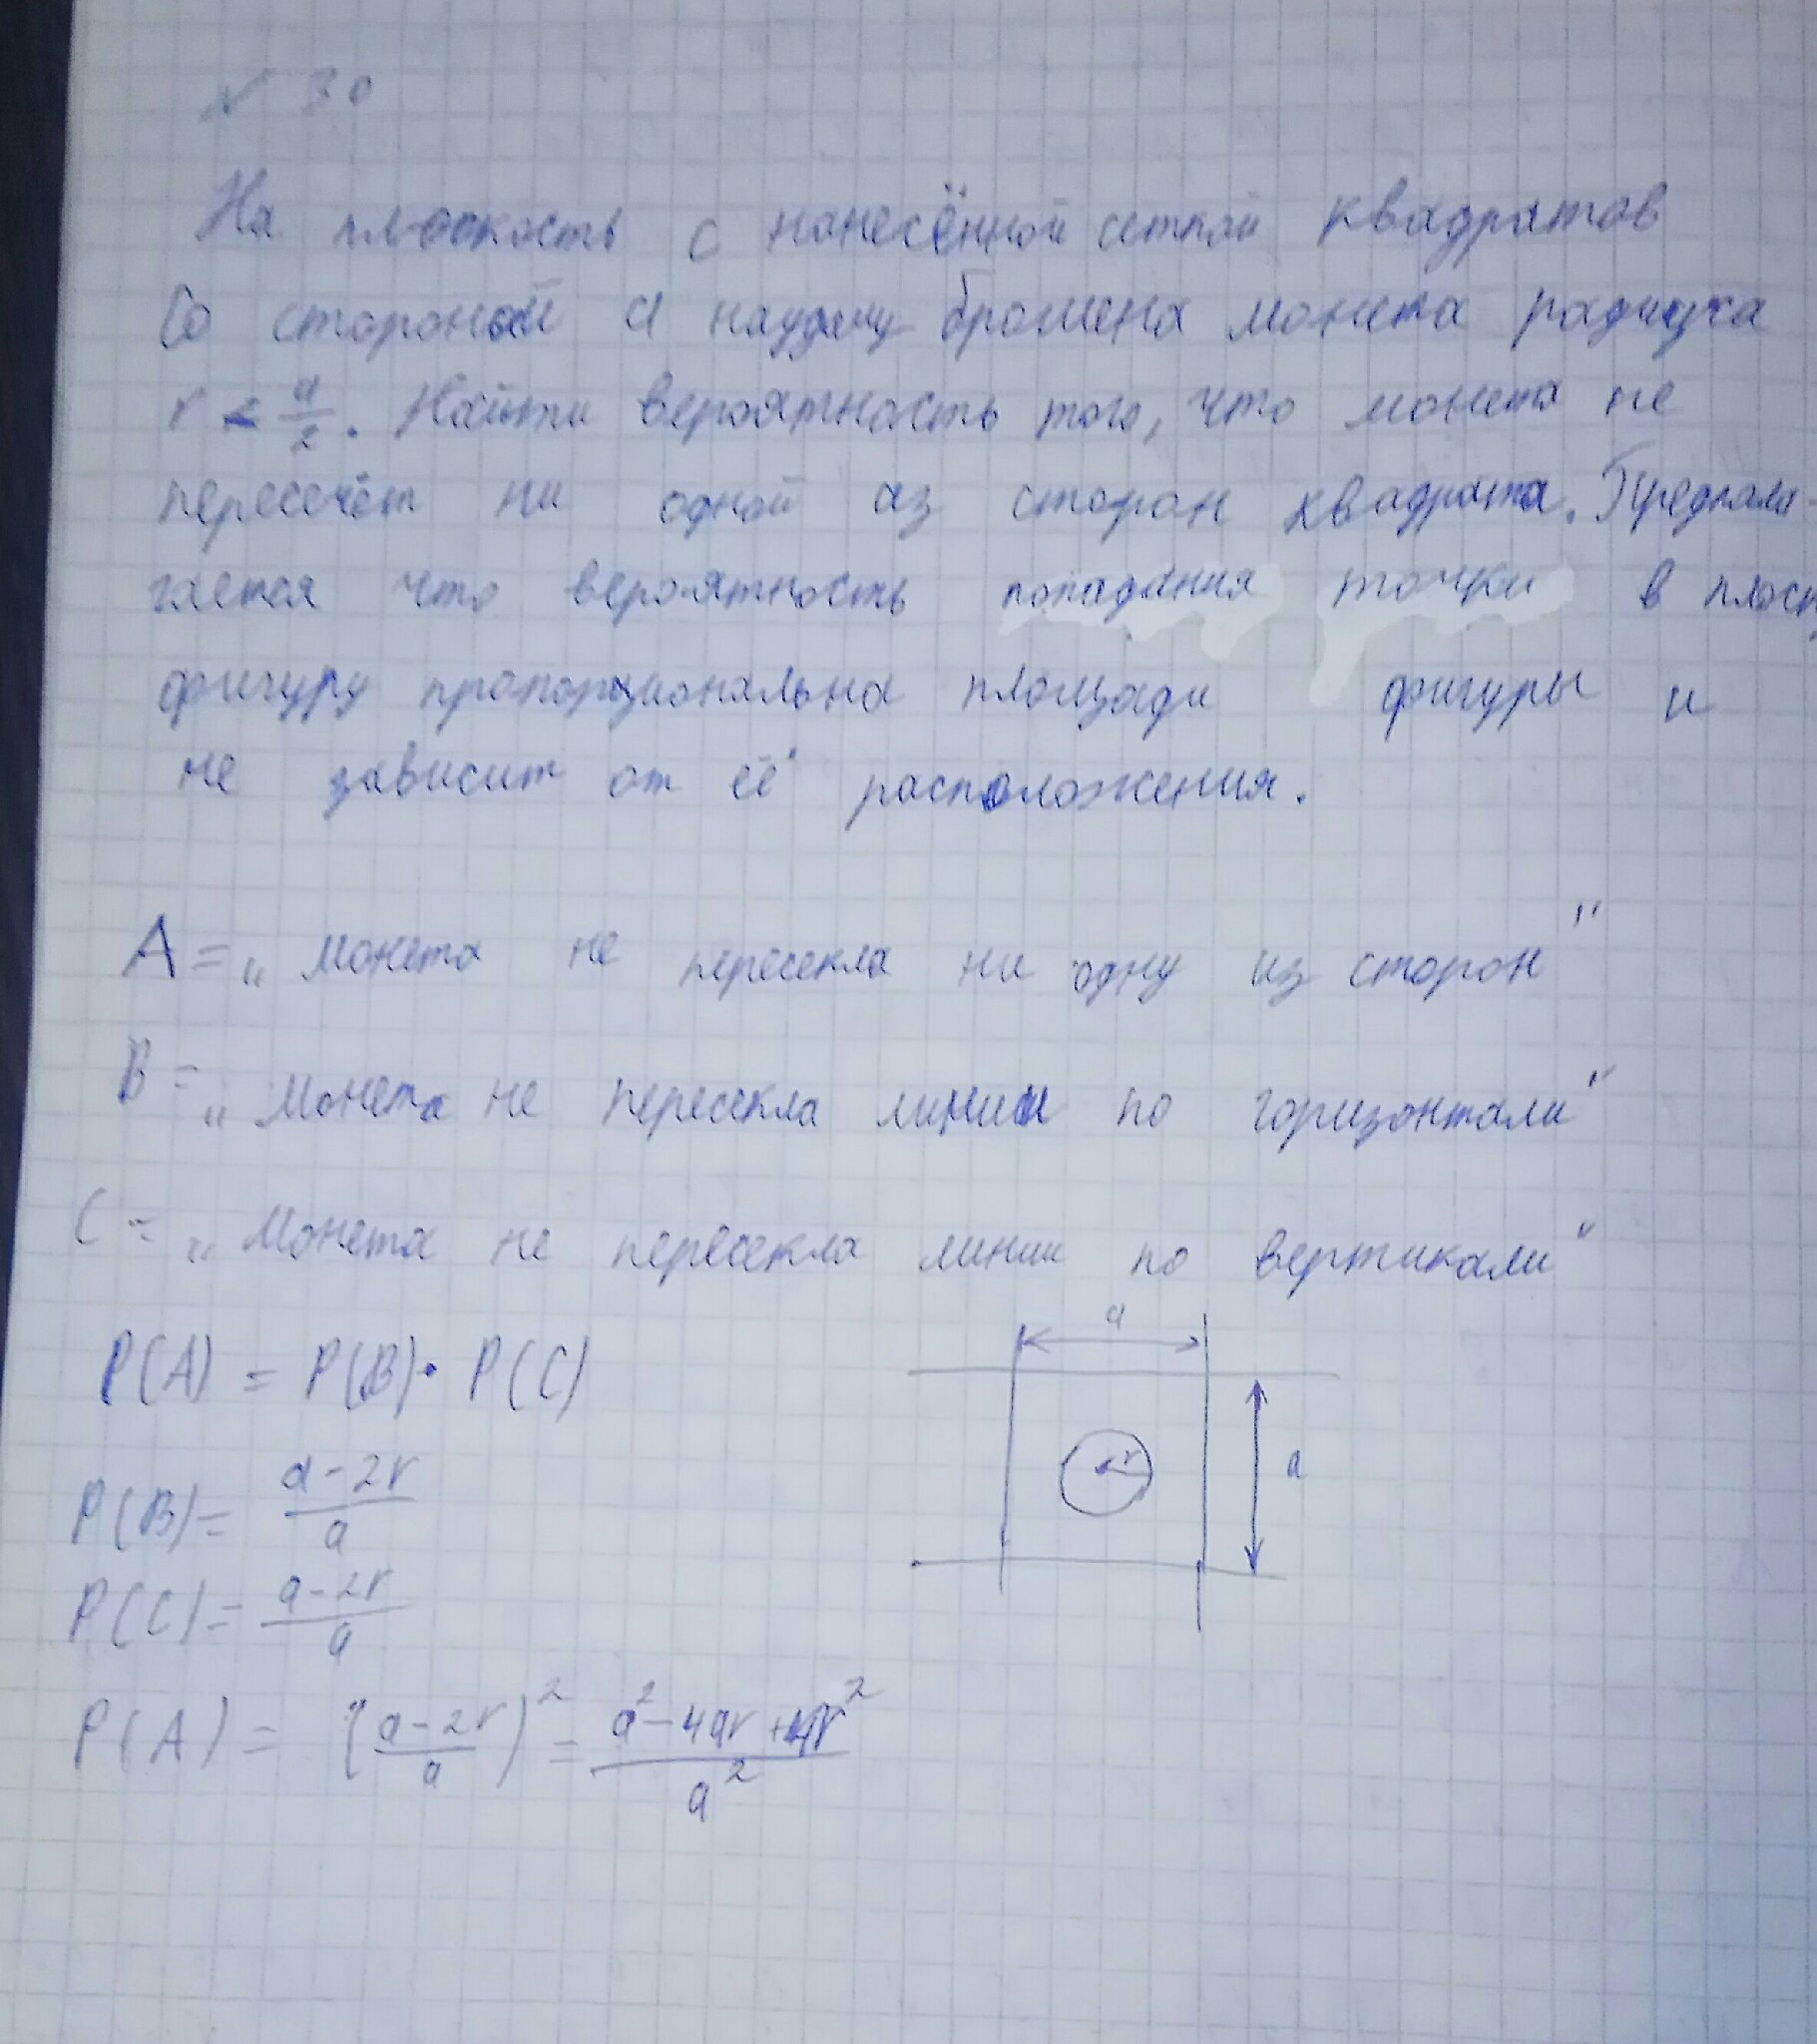 N 30
На плоскость с нанесённой сеткой квадратов
Со стороной a наудачу брошена монета радиуса
r < a/2. Найти вероятность того, что монета не
пересечёт ни одной из сторон квадрата. Предпола-
гается что вероятность попадания точки в плоск
фигуру пропорциональна площади фигуры и
не зависит от её расположения.
A = „Монета не пересекла ни одну из сторон"
B = „Монета не пересекла линии по горизонтали"
C = „Монета не пересекла линии по вертикали"
a
P(A) = P(B) · P(C)
r
a
P(B) = (a-2r)/a
P(C) = (a-2r)/a
P(A) = ((a-2r)/a)² = (a²-4ar+4r²)/a²